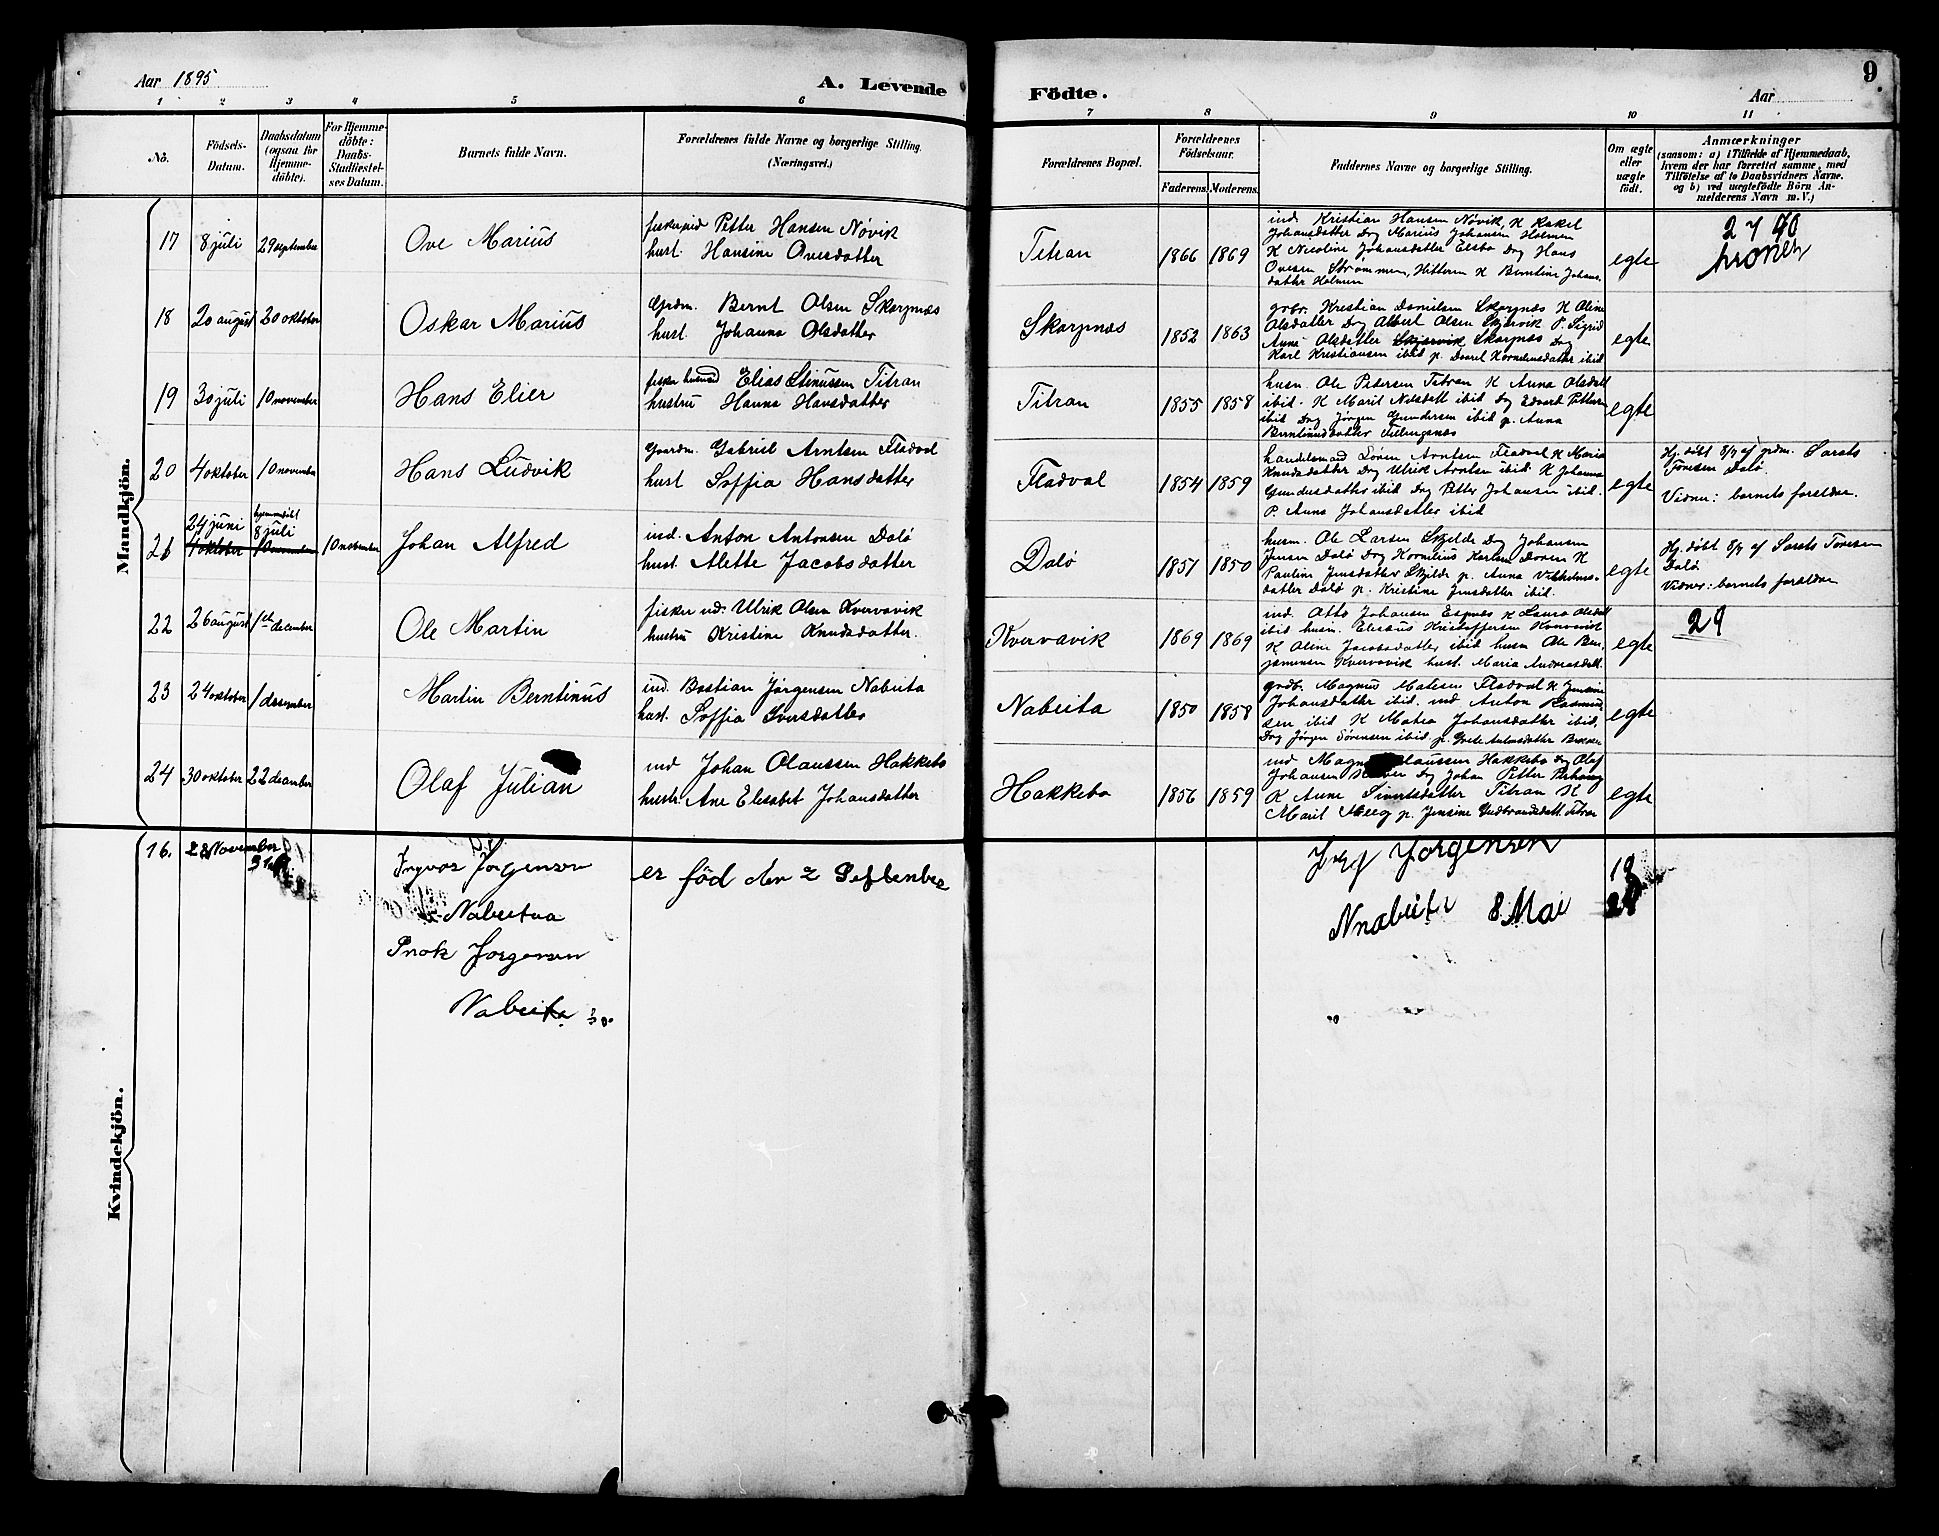 Aar 1895
A. Levende
Födte.
Aar
9
1 2 3 4 5 6 7 8 9 10 11
No.
Födsels-Datum.
Daabsdatum (ogsaa for Hjemme-döbte).
For Hjemme-döbte: Daabs-Stadfæstel-ses Datum.
Barnets fulde Navn.
Forældrenes fulde Navne og borgerlige Stilling. (Næringsvei.)
Forældrenes Bopæl.
Forældrenes Födselsaar.
Faderens. Moderens.
Faddernes Navne og borgerlige Stilling.
Om ægte eller uægte födt.
Anmærkninger
(saasom: a) i Tilfælde af Hjemmedaab,
hvem der har forrettet samme, med
Tilföielse af to Daabsvidners Navne.
og b) ved uægtefödte Börn An-
melderens Navn m. V.)
Mandkjön.
17 8 juli 29 september Ove Marius
Petter Hansen Növik
hust. Hansine Ovesdatter
Titran 1866 1869
ind. Kristian Hansen Növik, K Rakel
Johansdatter Dög Marius Johansen Holmen
K Nicoline Johansdatter Dög Hans
Ovesen Strömmen, Hitteren K Berntine Johans-
datter Holmen
egte
2 7 70
kroner
18 20 august 20 oktober Oskar Marius
Grdm. Bernt Olsen Skarpnæs
hust. Johanna Olsdatter
Skarpnæs 1852 1863
grbr. Kristian Danielsen Skarpnæs K Oline
Olsdatter Dög Albert Olsen Skjervik P. Sigrid
Anna Olsdatter Skjervik Skarpnæs Dög
Karl Kristiansen ibid p. Kornelusdatter ibid
egte
19 30 juli 10 november Hans Elier
fisker husmd Elias Stinussen Titran
hustru Hanna Hansdatter
Titran 1855 1858
husm. Ole Pedersen Titran K Anna Olsdatt
ibid. K Marit Nelsdatt ibid Dög Edvard Pettersen
ibid Dög Jörgen Gundersen ibid p. Anna
egte
20 4 oktober 10 november Hans Ludvik
Gaardm. Gabriel Arntsen Fladval
hust Soffia Hansdatter
Fladval 1854 1859
handelsmand Sören Arntsen Fladval K Maria
Knudsdatter Dög Ulrik Arntsen ibid. K Johanna
Gundersdatter ibid Dög Petter Johansen ibid.
P. Anna Johansdatter ibid
egte
Hj. döbt 8/7 af grdm. Sarats
Toresen Dalö.
Vidner: barnets forældre.
21 24 juni
4 oktober
hjemmedöbt
8 juli
10 november
10 november Johan Alfred
ind. Anton Antonsen Dalö
hust. Alette Jacobsdatter
Dalö 1851 1850
husm. Ole Larsen Skjelde Dög Johansen
Jensen Dalö Dög Kornelius Karlsen K
Pauline Jensdatter Skjelde p. Anna Vilhelms-
datter Dalö p. Kristine Jensdatter ibid.
egte
Hj. döbt 8/7 af Sarats Toresen
Dalö
Vidner: barnets forældre
22 26 august 1ste december Ole Martin
fisker ind. Ulrik Olsen Kvervavik
hustru Kristine Knudsdatter.
Kvervavik 1869 1869
ind. Otto Johansen Espnes K Laura Olsdatt
ibid husm. Elisæus Kristoffersen Kvervavik
K Oline Jacobsdatter ibid husm Ole Ben-
jaminsen Kvervavik hust. Maria Andreasdatt.
egte
29
23 24 oktober 1 desember Martin Berntinus
ind. Bastian Jörgensen Nabeita
hust. Soffia Iversdatter
Nabeita 1850 1858
grdb. Magnus Matisen Fladval K Jensine
Johansdatter ibid. ind Anton Rasmus-
sen ibid K Matea Johansdatter ibid.
Dög Jörgen Sörensen ibid. p. Grete
egte
24 30 oktober 22 decamber Olaf Julian
ind Johan Olaussen Hakkebo
hustr. Ane Elisabet Johansdatter
Hakkebo 1856 1859
ind Magnus Olaussen Hakkebo Dög Olaf
Johansen Dög Johan Petter
K Anne Sivertsdatter Titran K
Marit p. Jensine Gudbrandsdatt. Titran
egte
Kvindekjön.
16. 28 November
Ingvar Jörgensen
Nabeitaa
er föd den 2 September
Jörgensen
Nabeita
Jorgensen
Nnabeita 8 Mai
19